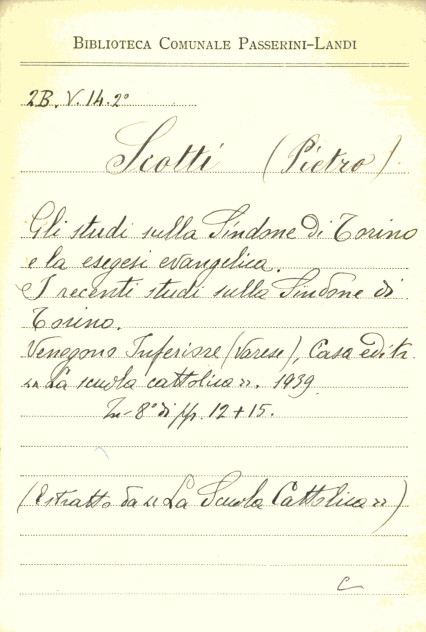 BIBLIOTECA COMUNALE PASSERINI-LANDI
2B. V. 14. 2°
Scotti (Pietro)
Gli studi sulla Sindone di Torino
e la esegesi evangelica.
I recenti studi sulla Sindone di
Torino.
Venegono Inferiore (Varese), Casa editr.
« La scuola cattolica ». 1939.
In-8° di pp. 12+15.
(Estratto da « La Scuola Cattolica »)
C